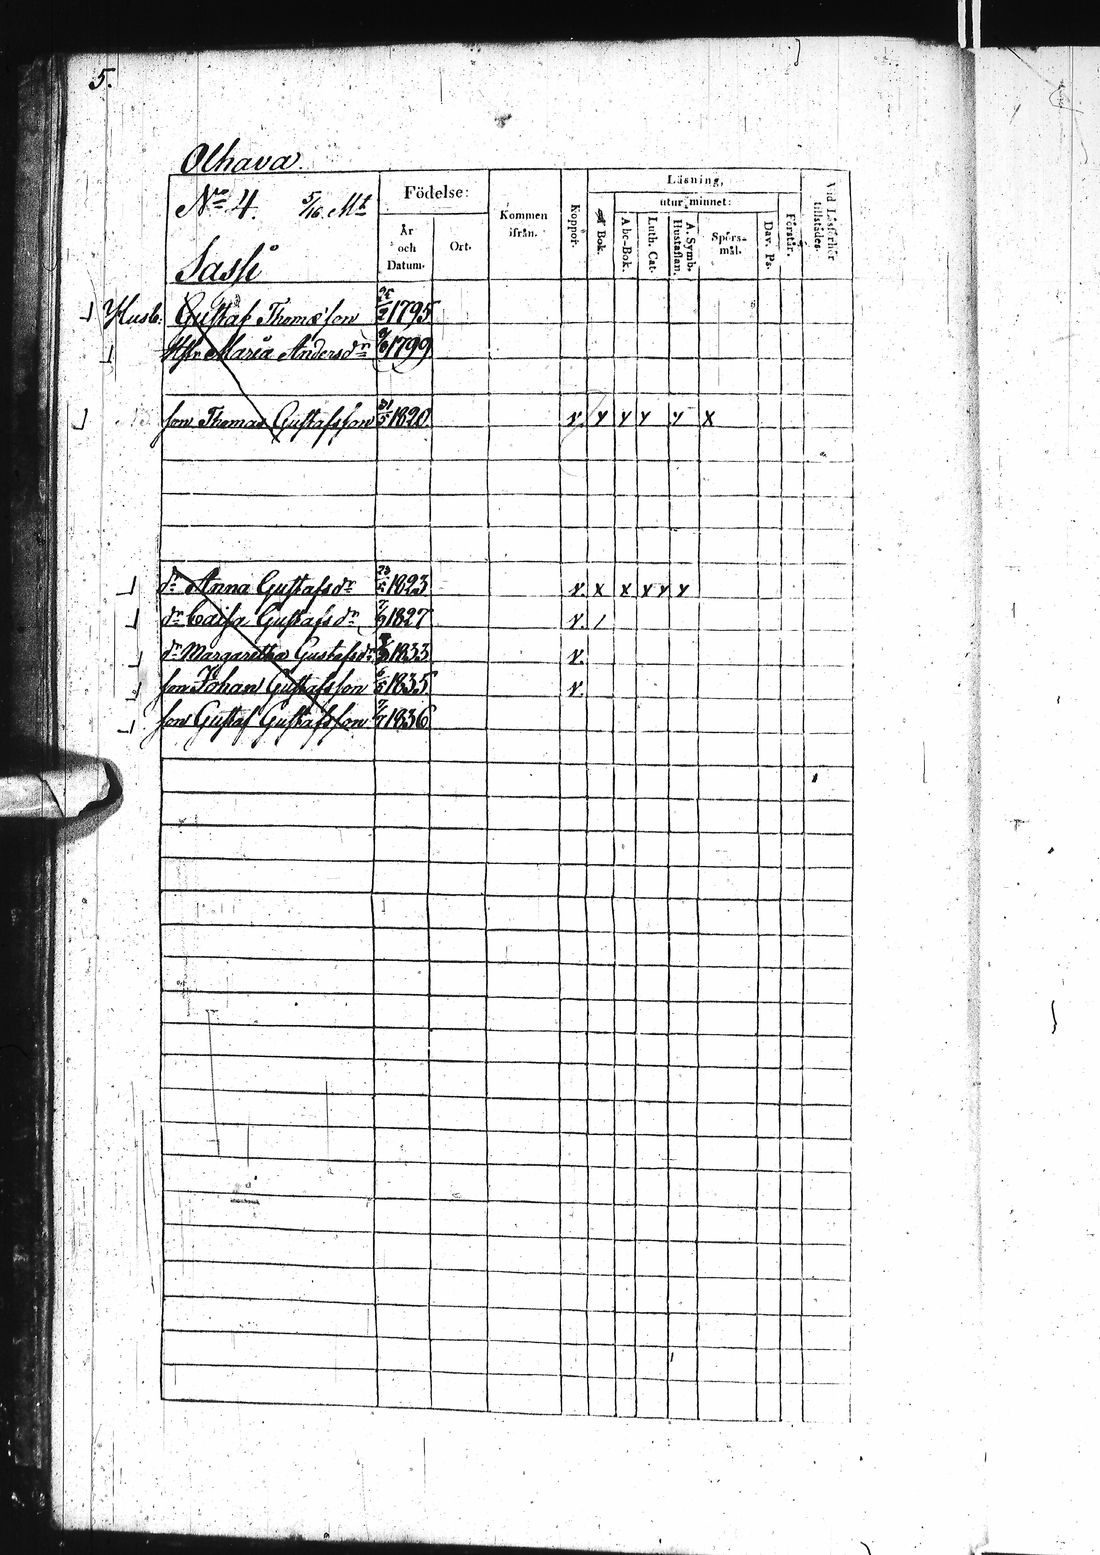 5.
Olhava.
No 4. 5/16 Mtl
Sassi
Födelse:
År och Datum.
Ort.
Kommen ifrån.
Koppor.
Läsning,
utur minnet:
Bok.
Abc-Bok.
Luth. Cat.
A. Symb. Hustaflan.
Spörs-mål.
Dav. Ps.
Förstår.
Vid Läsförhör tillstädes.
Husb. Gustaf Thomæson 1795
Maria Andersdr 1799
son Thomas Gustafsson 31/5 1820 v. y y y y x
dr Anna Gustafsdr 1823 v. x x x y y
dr Caisa Gustafsdr 1827 v. /
dr Margaretha Gustafsdr 1833 v.
son Johan Gustafsson 1835 v.
son Gustaf Gustafsson 1836